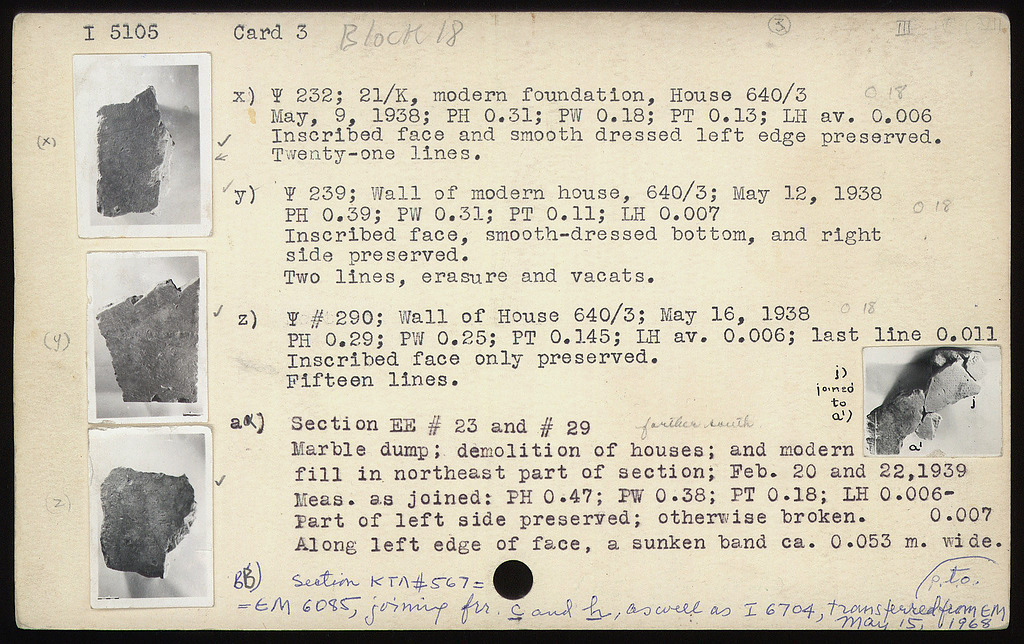 I 5105 Card 3 Block 18 3 III
x) Ψ 232; 21/K, modern foundation, House 640/3 O 18
May, 9, 1938; PH 0.31; PW 0.18; PT 0.13; LH av. 0.006
(x) Inscribed face and smooth dressed left edge preserved.
Twenty-one lines.
y) Ψ 239; Wall of modern house, 640/3; May 12, 1938
PH 0.39; PW 0.31; PT 0.11; LH 0.007 O 18
Inscribed face, smooth-dressed bottom, and right
side preserved.
Two lines, erasure and vacats.
z) Ψ # 290; Wall of House 640/3; May 16, 1938 O 18
(y) PH 0.29; PW 0.25; PT 0.145; LH av. 0.006; last line 0.011
Inscribed face only preserved.
Fifteen lines.
j)
joined
to
a')
j
a'
aα) Section EE # 23 and # 29 farther south
Marble dump; demolition of houses; and modern
fill in northeast part of section; Feb. 20 and 22,1939
(z) Meas. as joined: PH 0.47; PW 0.38; PT 0.18; LH 0.006-
Part of left side preserved; otherwise broken. 0.007
Along left edge of face, a sunken band ca. 0.053 m. wide.
Section KTΛ #567= p.t.o.
=EM 6085, joining frr. c and h, as well as I 6704, transferred from EM
May 15, 1968